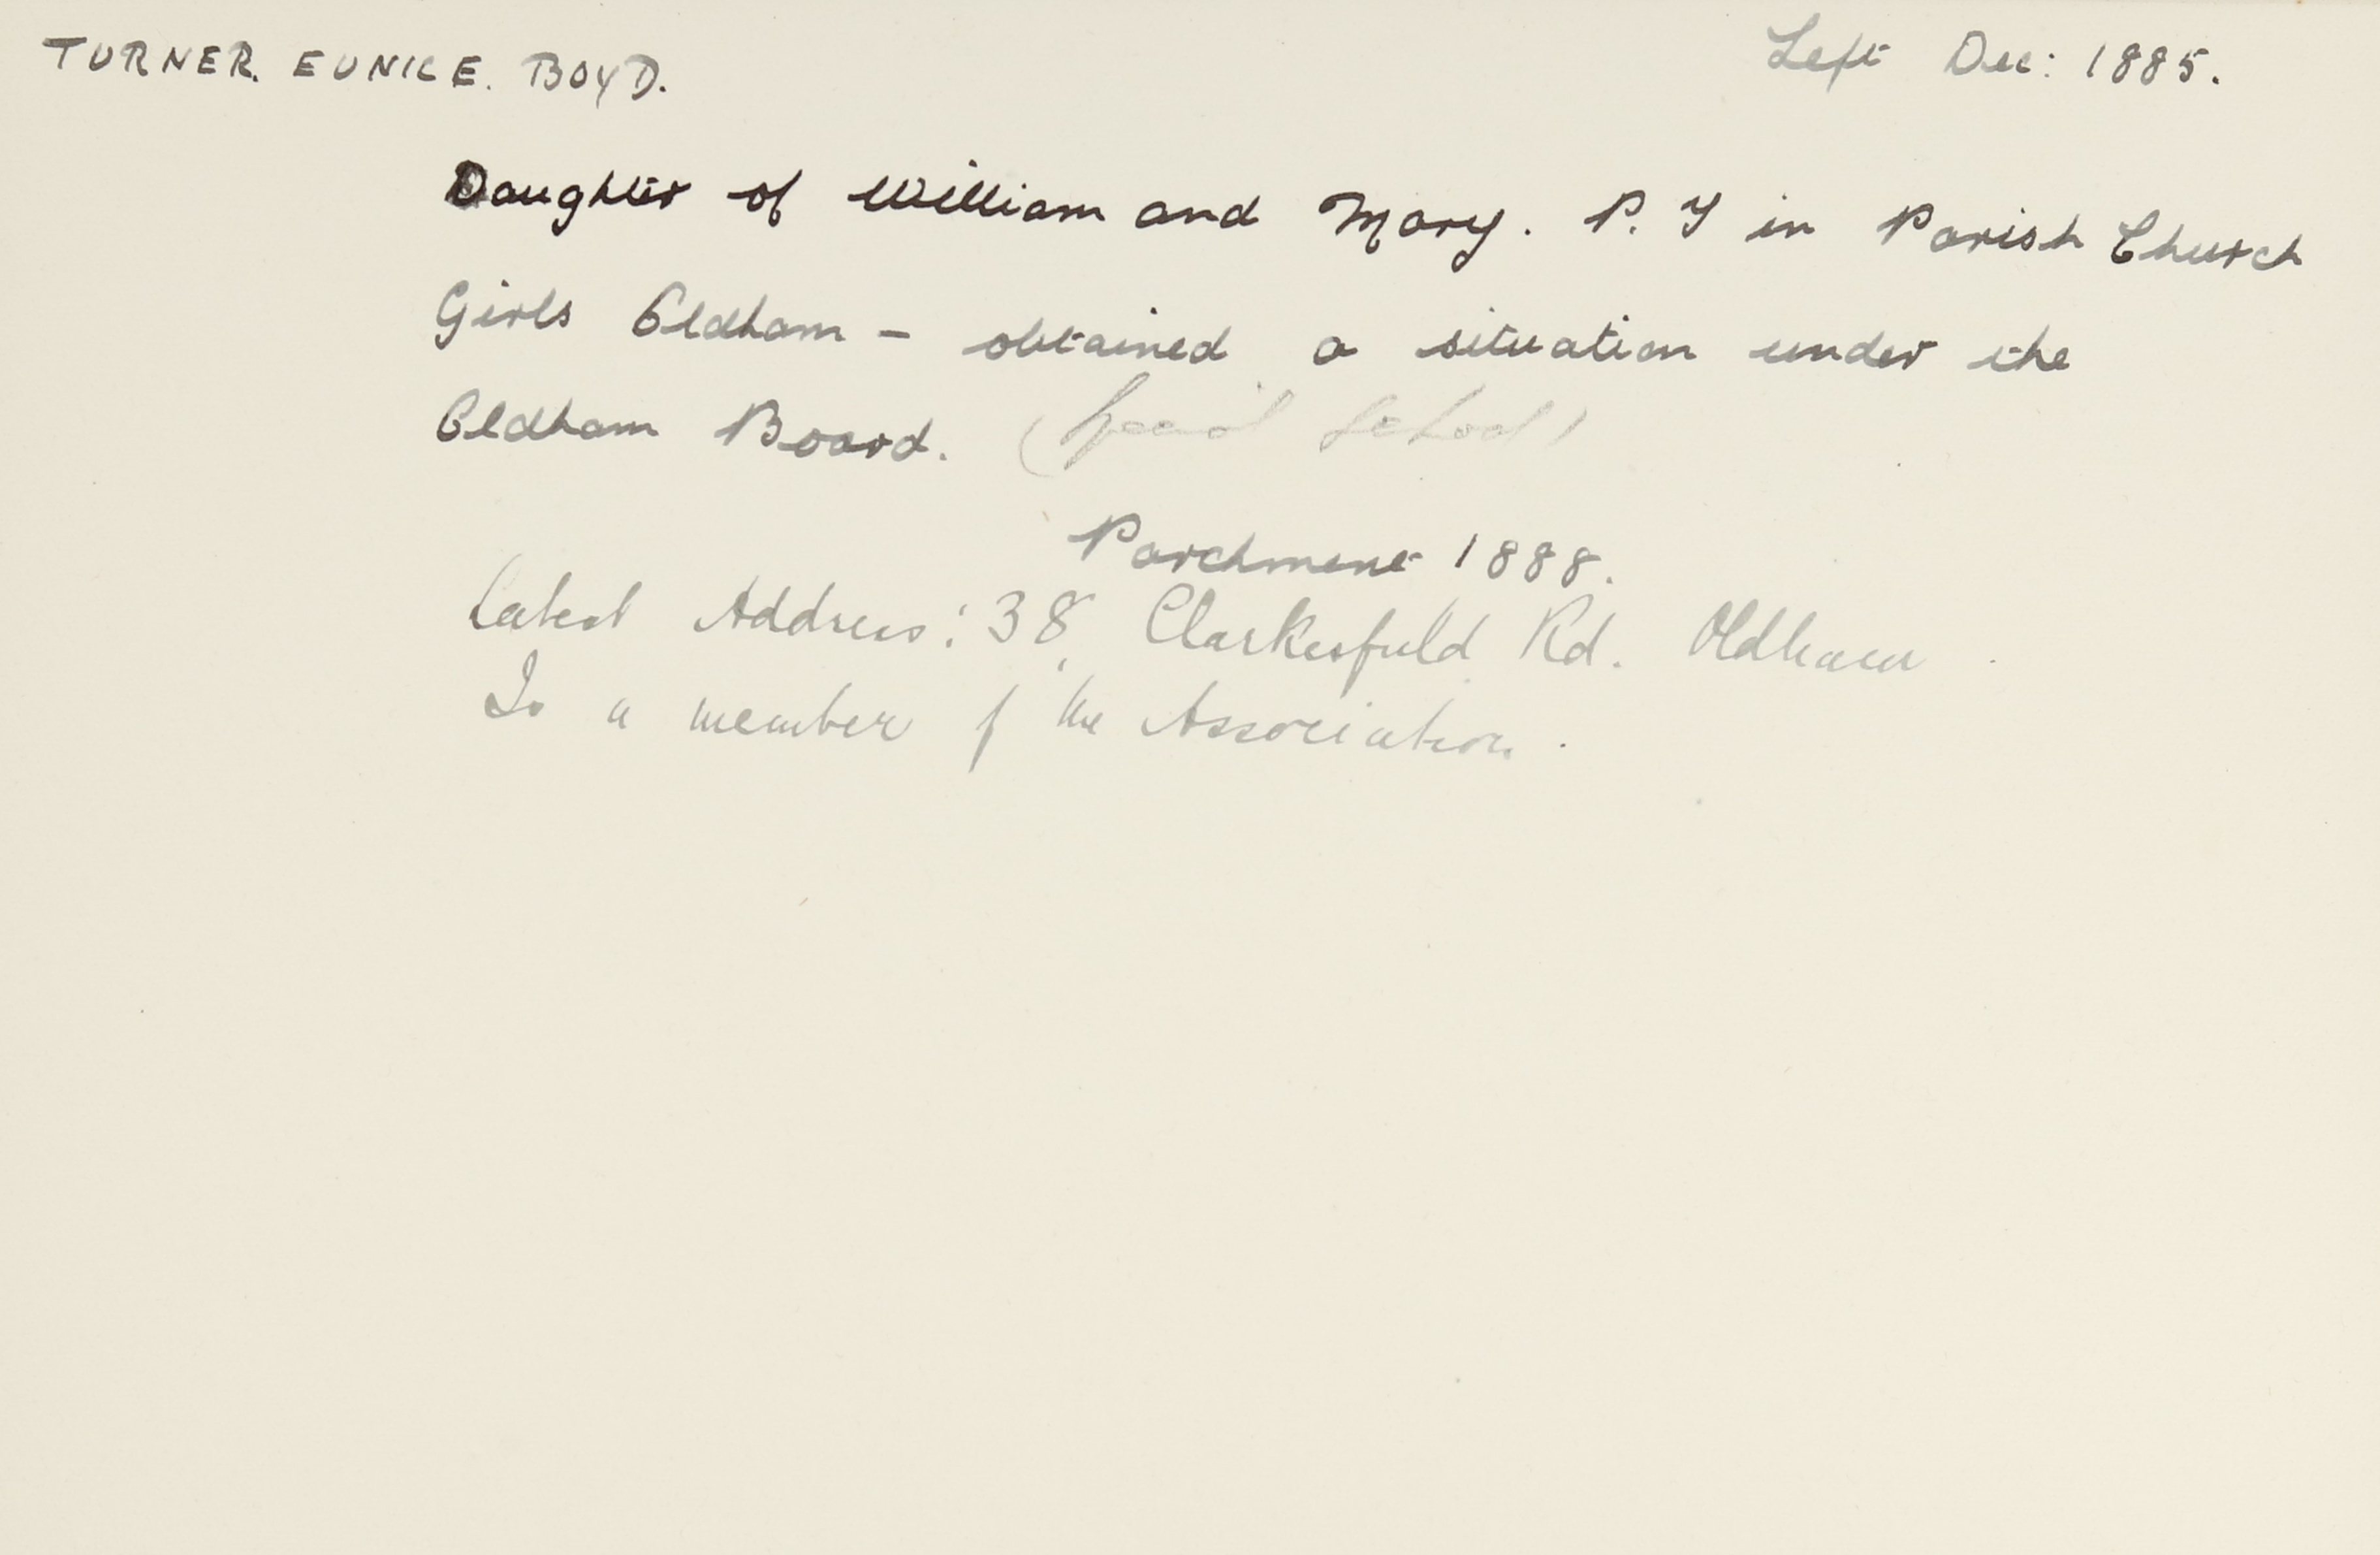 TURNER. EUNICE. BOYD. Left Dec: 1885.
Daughter of William and Mary. P. T in Parish Church
Girls Oldham - obtained a situation under the
Oldham Board. (Special School)
Parchment 1888.
Latest Address: 38, Clarkesfield Rd. Oldham.
Is a member of the Association.